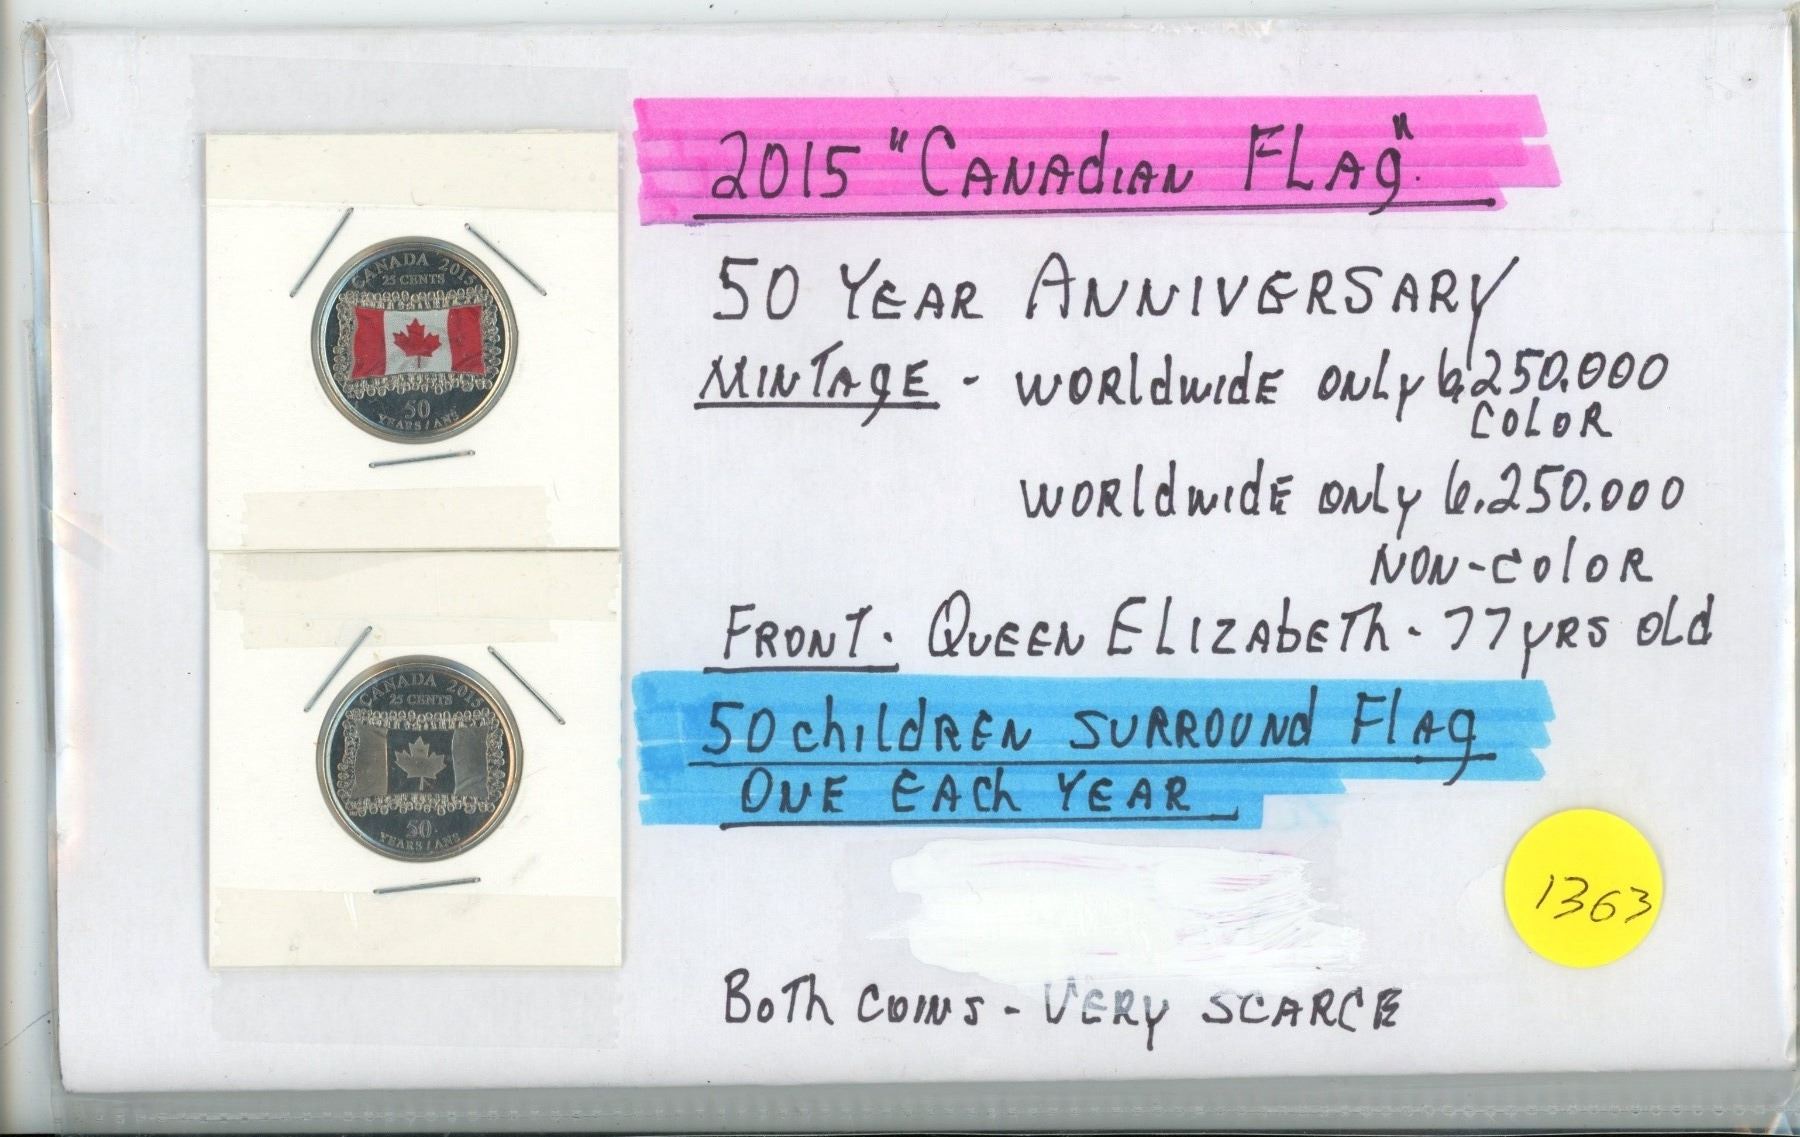 2015 "CANAdiAN FLAg"
50 YEAR ANNIVERSARY
MINTAgE - WORldwidE ONLy 6,250,000
COLOR
WORldwidE ONLy 6,250,000
NON-COlOR
FRONT- QUEEN ELIZAbETh - 77 yRS OLd
50 childREN SURROUNd FlAg
ONE EACh YEAR
1363
BoTh COINS - VERy SCARCE
CANADA 2015
25 CENTS
50
YEARS / ANS
CANADA 2015
25 CENTS
50
YEARS / ANS